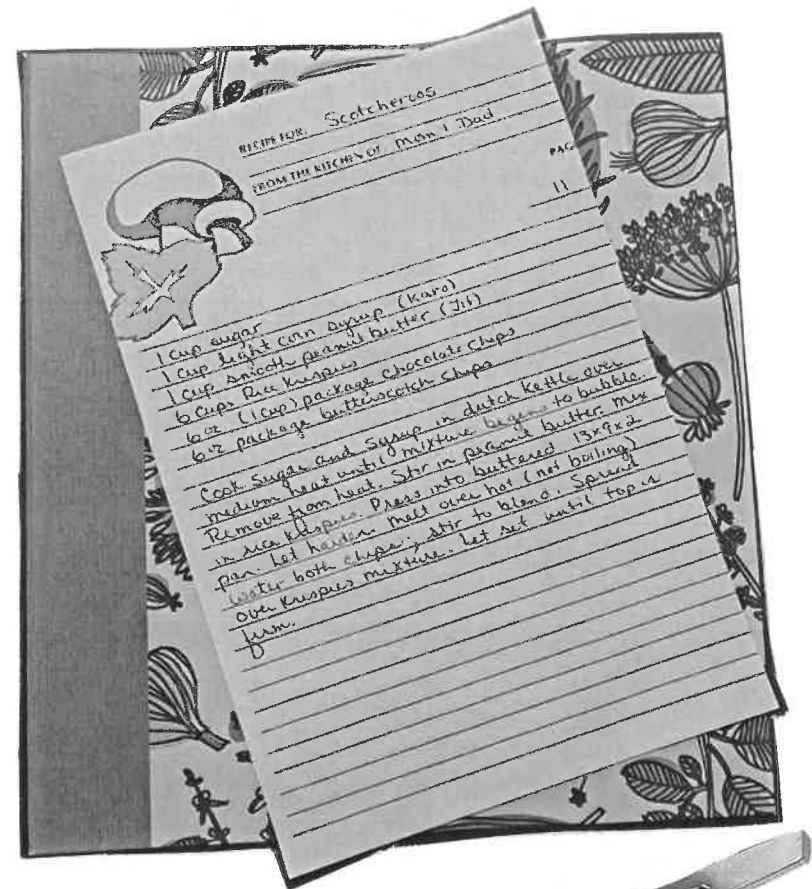 RECIPE FOR: Scotcheroos
FROM THE KITCHEN OF: Mom & Dad
PAGE
11
1 cup sugar
1 cup light corn syrup (Karo)
1 cup smooth peanut butter (Jif)
6 cups Rice Krispies
6 oz (1 cup) package chocolate chips
6 oz package butterscotch chips
Cook sugar and syrup in dutch kettle over
medium heat until mixture begins to bubble.
Remove from heat. Stir in peanut butter. Mix
in rice krispies. Press into buttered 13x9x2
pan. Let harden. Melt over hot (not boiling)
water both chips; stir to blend. Spread
over Krispies mixture. Let set until top is
firm.